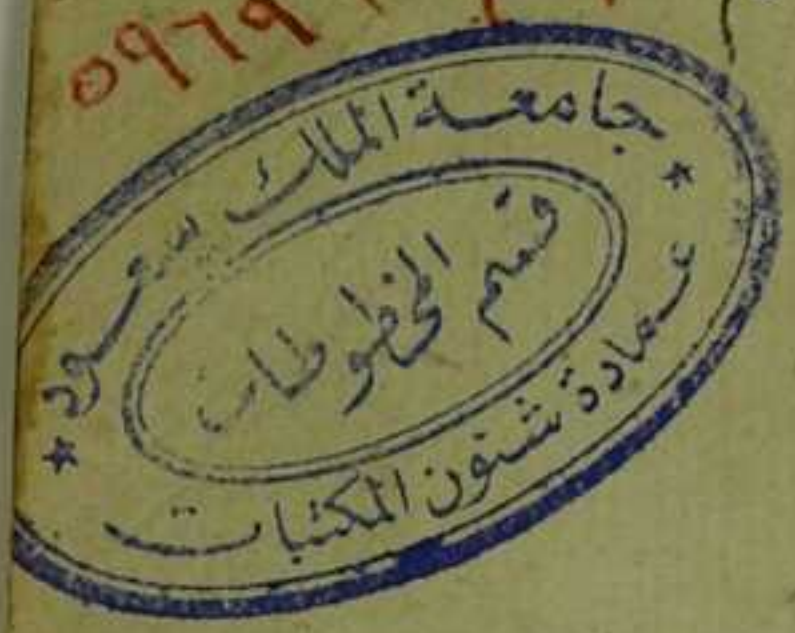 ٥٩٦٩
جامعة الملك سعود
قسم المخطوطات
عمادة شئون المكتبات